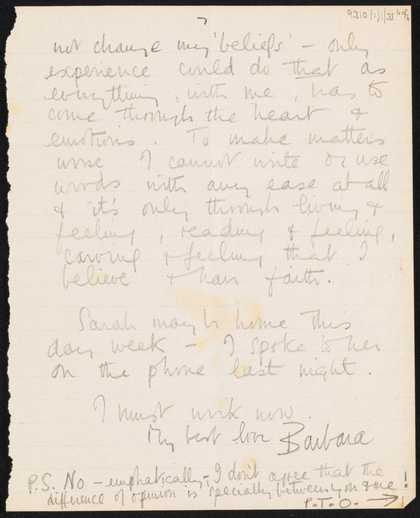 9210/1/1/35 4/4
7
not change my 'beliefs' – only
experience could do that as
everything, with me, has to
come through the heart &
emotions. To make matters
worse I cannot write or use
words with any ease at all
& it's only through living &
feeling, reading & feeling,
carving & feeling that I
believe & have faith.
Sarah may be home this
day week – I spoke to her
on the phone last night.
I must work now.
My best love Barbara
P.S. No – emphatically, I don't agree that the
difference of opinion is specially between you & me!
P.T.O. →